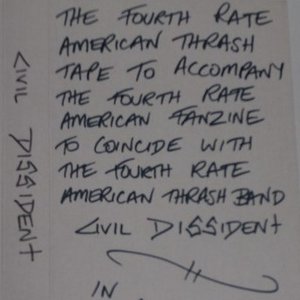 THE FOURTH RATE
AMERICAN THRASH
TAPE TO ACCOMPANY
THE FOURTH RATE
AMERICAN FANZINE
TO COINCIDE WITH
THE FOURTH RATE
AMERICAN THRASH BAND
CIVIL DISSIDENT
IN
CIVIL DISSIDENT